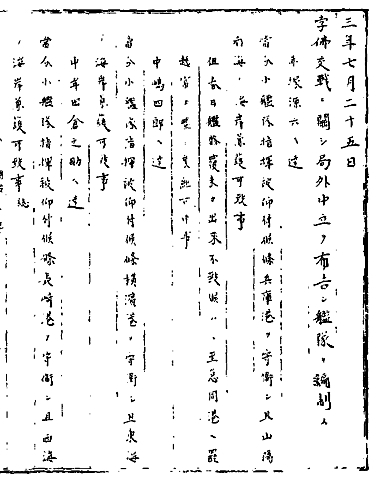 三年七月二十五日
孛佛交戰ニ關シ局外中立ヲ布告シ艦隊ヲ編制ス
赤塚源六ヘ達
當分小艦隊指揮被仰付候條兵庫港ヲ守衞シ且山陽
南海ノ海岸兼護可致事
但春日艦修覆未タ出来不致候ハヽ至急同港ヘ罷
越富士艦乘組可申事
中嶋四郎ヘ達
當分小艦隊指揮被仰付候條横濱港ヲ守衞シ且東海
ノ海岸兼護可致事
中牟田倉之助ヘ達
當分小艦隊指揮被仰付候條長崎港ヲ守衞シ且西海
ノ海岸兼護可致事